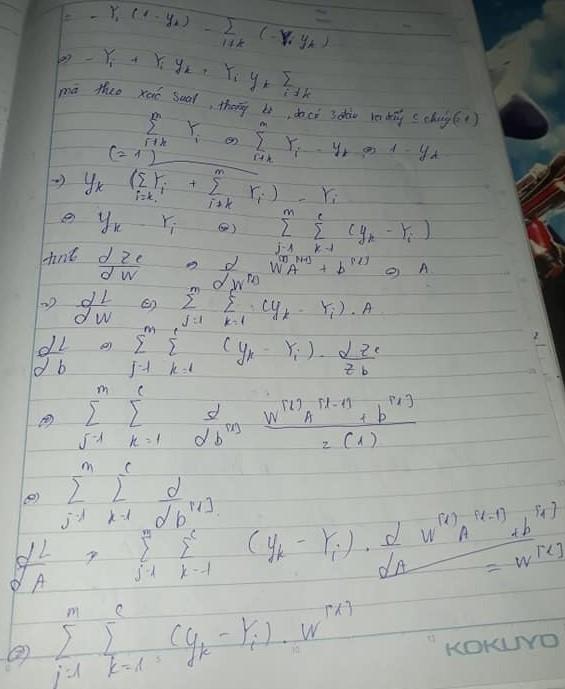 = - Yᵢ (1 - yₖ) - Σ_{i≠k} (- Yᵢ yₖ)
⇔ - Yᵢ + Yᵢ yₖ + Yᵢ yₖ Σ_{i≠k}
mà theo xác suất, thống kê, ta có
Σ_{i≠k}^{m} Yᵢ ⇔ Σ_{i≠k}^{m} Yᵢ - yₖ ⇔ 1 - yₖ
(= 1)
⇒ yₖ (Σ_{i=k} Yᵢ + Σ_{i≠k}^{m} Yᵢ) - Yᵢ
⇔ yₖ - Yᵢ ⇔ Σ_{j=1}^{m} Σ_{k=1}^{c} (yₖ - Yᵢ)
tính dzc/dW ⇔ d/dW^{[l]} W^{[l]} A^{[l-1]} + b^{[l]} ⇔ A
⇒ dL/dW ⇔ Σ_{j=1}^{m} Σ_{k=1}^{c} (yₖ - Yᵢ) . A
dL/db ⇔ Σ_{j=1}^{m} Σ_{k=1}^{c} (yₖ - Yᵢ) . dzc/zb
⇔ Σ_{j=1}^{m} Σ_{k=1}^{c} d/db^{[l]} W^{[l]} A^{[l-1]} + b^{[l]}
= (1)
⇔ Σ_{j=1}^{m} Σ_{k=1}^{c} d/db^{[l]}
dL/dA ⇒ Σ_{j=1}^{m} Σ_{k=1}^{c} (yₖ - Yᵢ) . d/dA W^{[l]} A^{[l-1]} + b^{[l]}
= W^{[l]}
⇔ Σ_{j=1}^{m} Σ_{k=1}^{c} (yₖ - Yᵢ) . W^{[l]}
KOKUYO